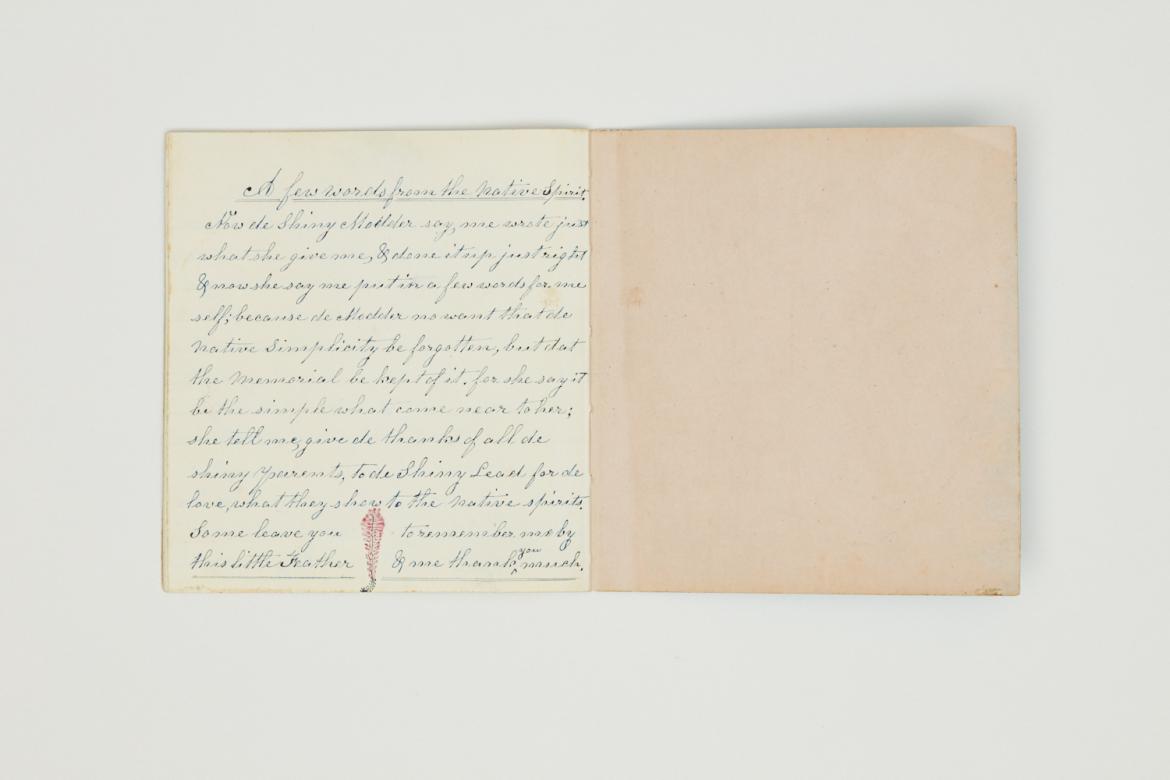 A few words from the Native Spirit.
Now de Shiny Modder say, me wrote just
what she give me, & done it up just right
& now she say me put in a few words for me
self; because de Modder no want that de
Native Simplicity be forgotten, but dat
the Memorial be kept of it. for she say it
be the simple what come near to her;
she tell me, give de thanks of all de
shiny Parents, to de Shiny Lead for de
love, what they show to the native spirits.
Some leave you to remember me by
this little Feather & me thank you much.